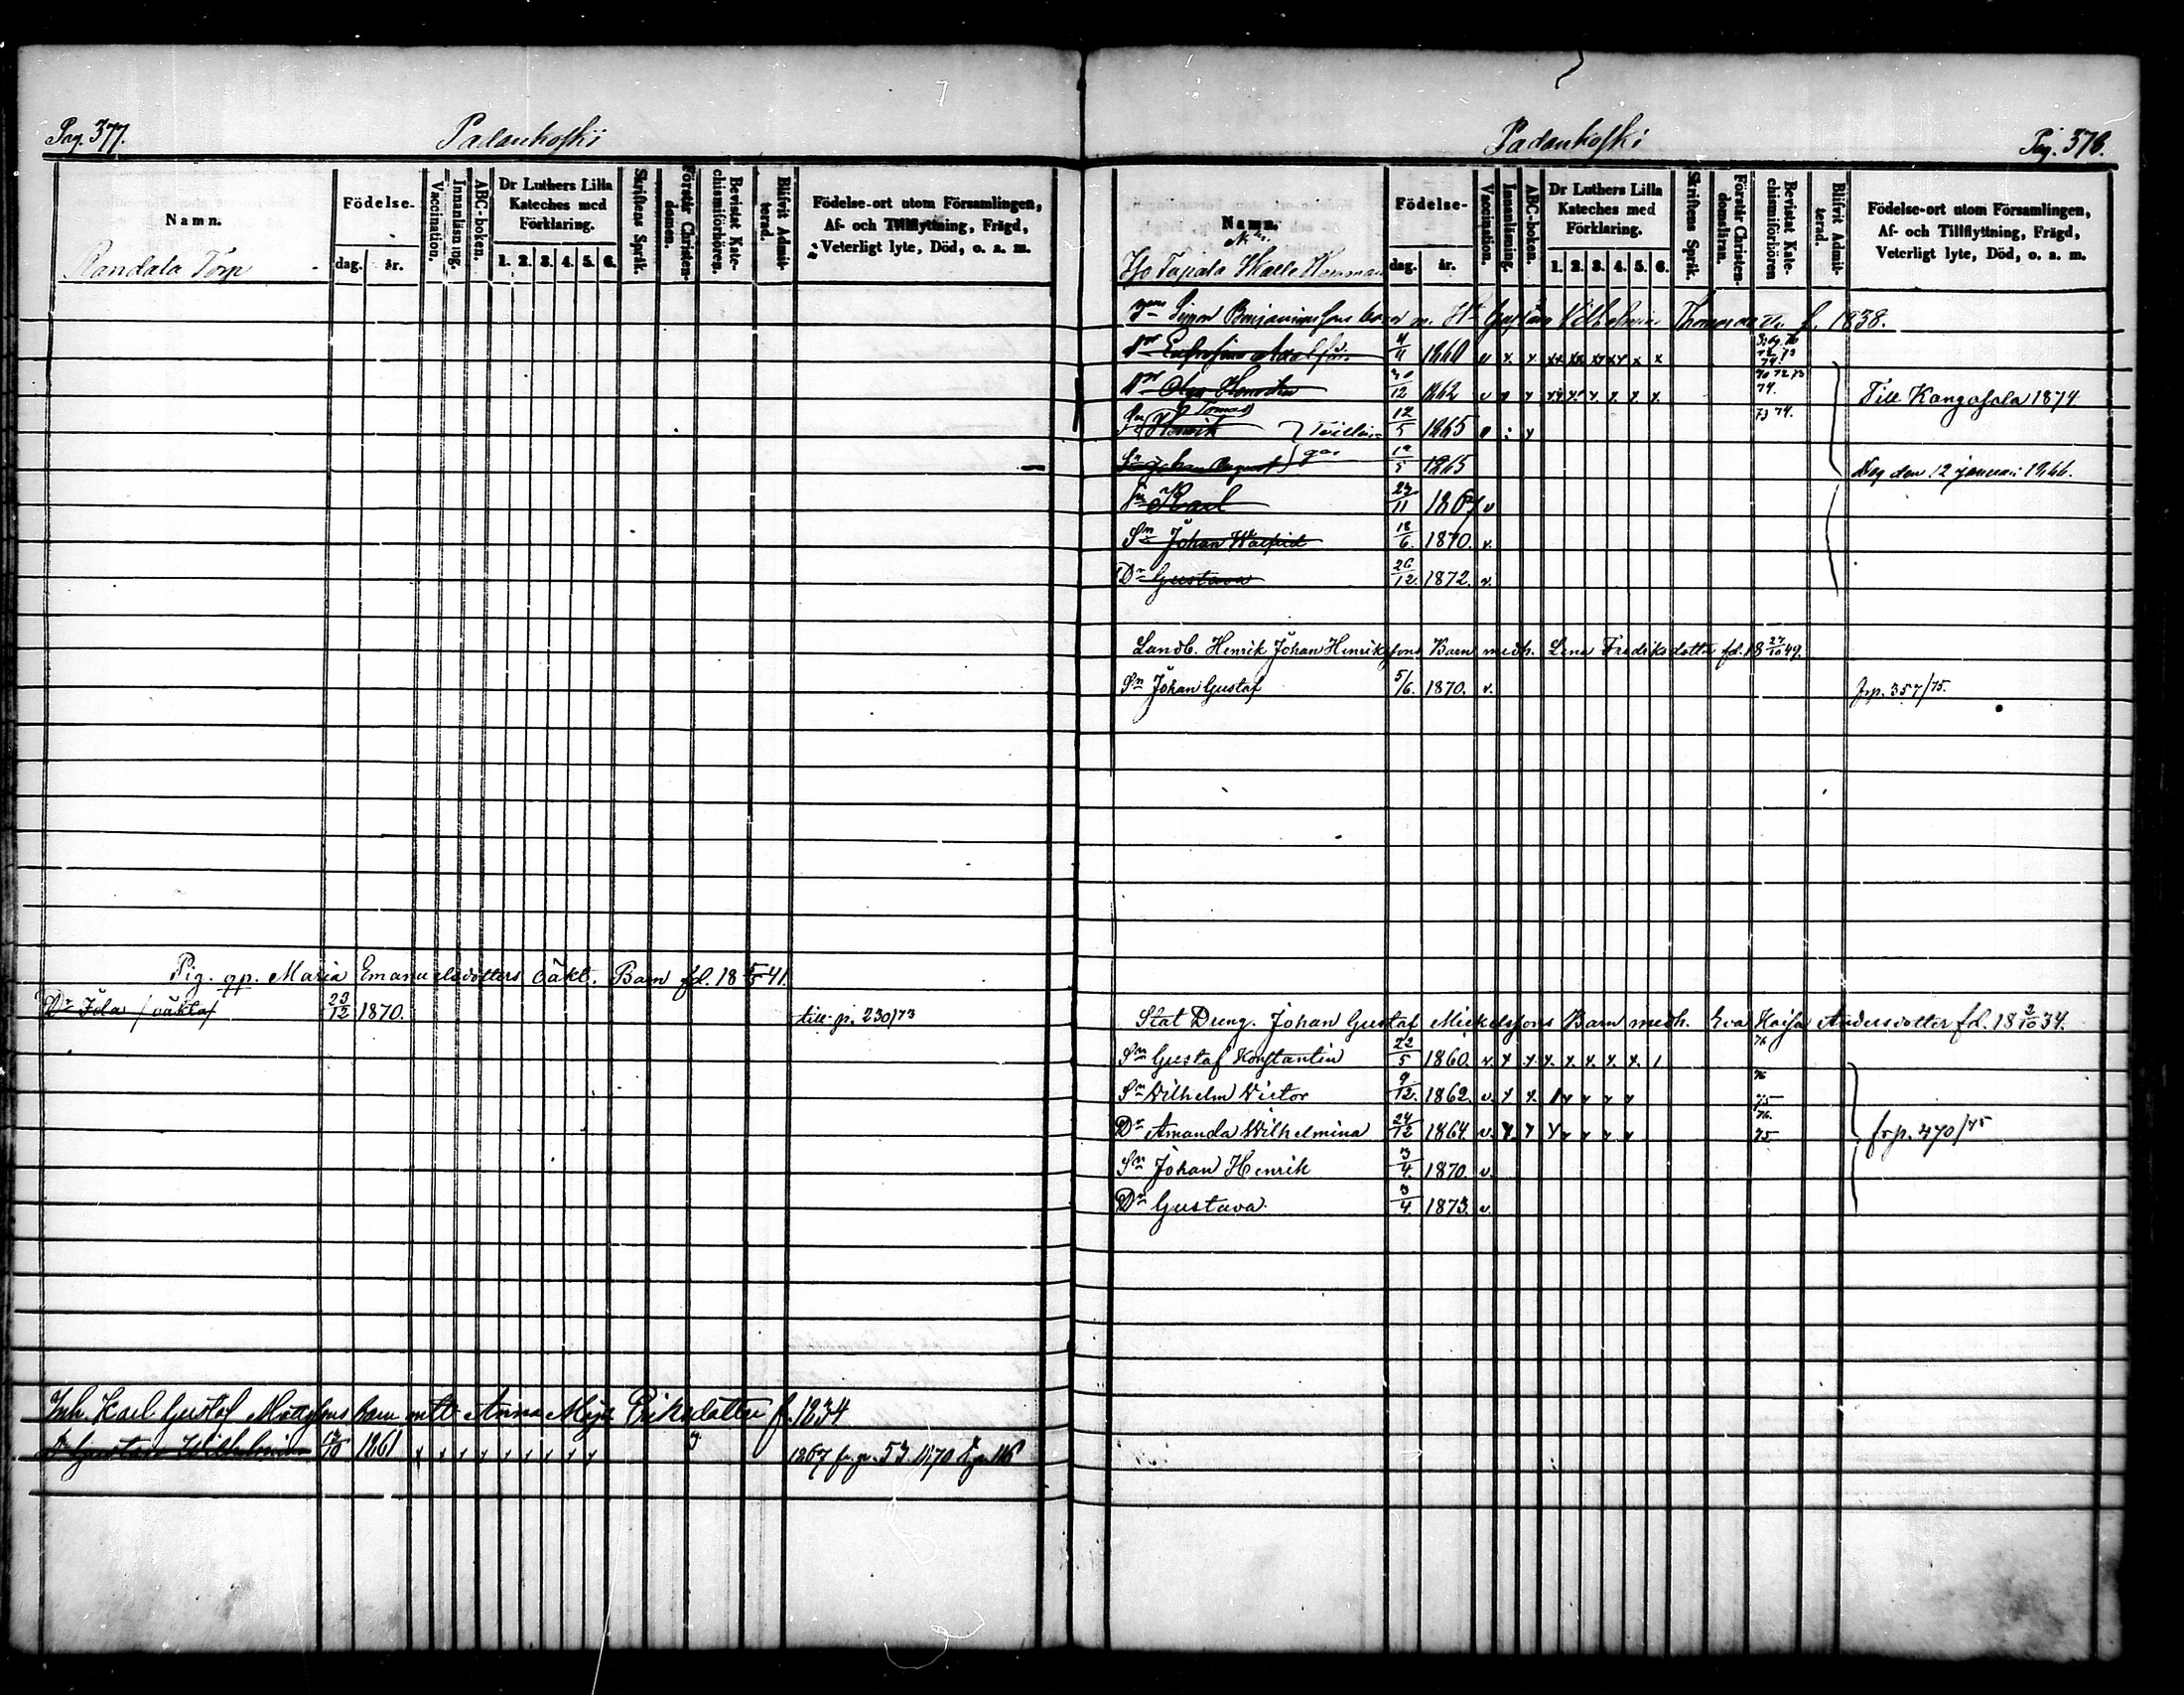 Pag. 377.
Padankoski
Namn.
Födelse-
dag. år.
Vaccination.
Innanläsning.
ABC-boken.
Dr Luthers Lilla Kateches med Förklaring.
1. 2. 3. 4. 5. 6.
Skriftens Språk.
Förstår Christen-domen.
Bevistat Kate-chismiförhören.
Blifvit Admit-terad.
Födelse-ort utom Församlingen,
Af- och Tillflyttning, Frägd,
Veterligt lyte, Död, o. a. m.
Randala Torp
Pig. qp. Maria Emanuelsdotters oäkt. Barn fd. 18 5/5 41.
Dr Ida / oäkta / 23/12 1870. till p. 230/73
Inh. Karl Gustaf Mattssons barn m H Anna Maja Eriksdotter f. 1834
Dr Gustava Wilhelmina 1861 v x x x x x x x x 1867 fr. p. 53. 1870 t. p. 116
Padankoski
Pag. 378.
Namn.
Födelse-
dag. år.
Vaccination.
Innanläsning.
ABC-boken.
Dr Luthers Lilla Kateches med Förklaring.
1. 2. 3. 4. 5. 6.
Skriftens Språk.
Förstår Christen-domsläran.
Bevistat Kate-chismiförhören
Blifvit Admit-terad.
Födelse-ort utom Församlingen,
Af- och Tillflyttning, Frägd,
Veterligt lyte, Död, o. a. m.
Tapala Skatte Hemman
Simon Benjaminssons barn m. H. Gustava Vilhelmina Thomasdr. f. 1838.
Dr Eufrosina 4/11 1860 v x x xx xx xx xx x x
Dr Olga 30/12 1862 v x x 70 72 73 74. Till Kangasala 1874
Sn Henrik Tomas } Tvillin- 12/5 1865 v 73 74.
Sn Johan August } gar 12/5 1865 Dog den 12 januari 1866.
Sn Karl 27/11 1867 v
Sn Johan Walfrid 18/6. 1870. v.
Dr Gustava 26/12. 1872. v.
Landb. Henrik Johan Henrikssons Barn medh. Lena Fredriksdotter fd. 18 27/10 49.
Sn Johan Gustaf 5/6. 1870. v. frp. 357/75.
Stat Dreng. Johan Gustaf Mickelssons Barn medh. Eva Kaisa Andersdotter fd. 18 2/10 34.
Sn Gustaf Konstantin 22/5 1860. v. x x x. x. x. x. x. 1 76
Sn Wilhelm Victor 9/12. 1862. v. x x. x x x x 76 75
Dr Amanda Wilhelmina 24/12 1864. v. x. x x x x x 76. 75 frp. 470/75
Sn Johan Henrik 3/4. 1870. v.
Dr Gustava. 3/4. 1873. v.